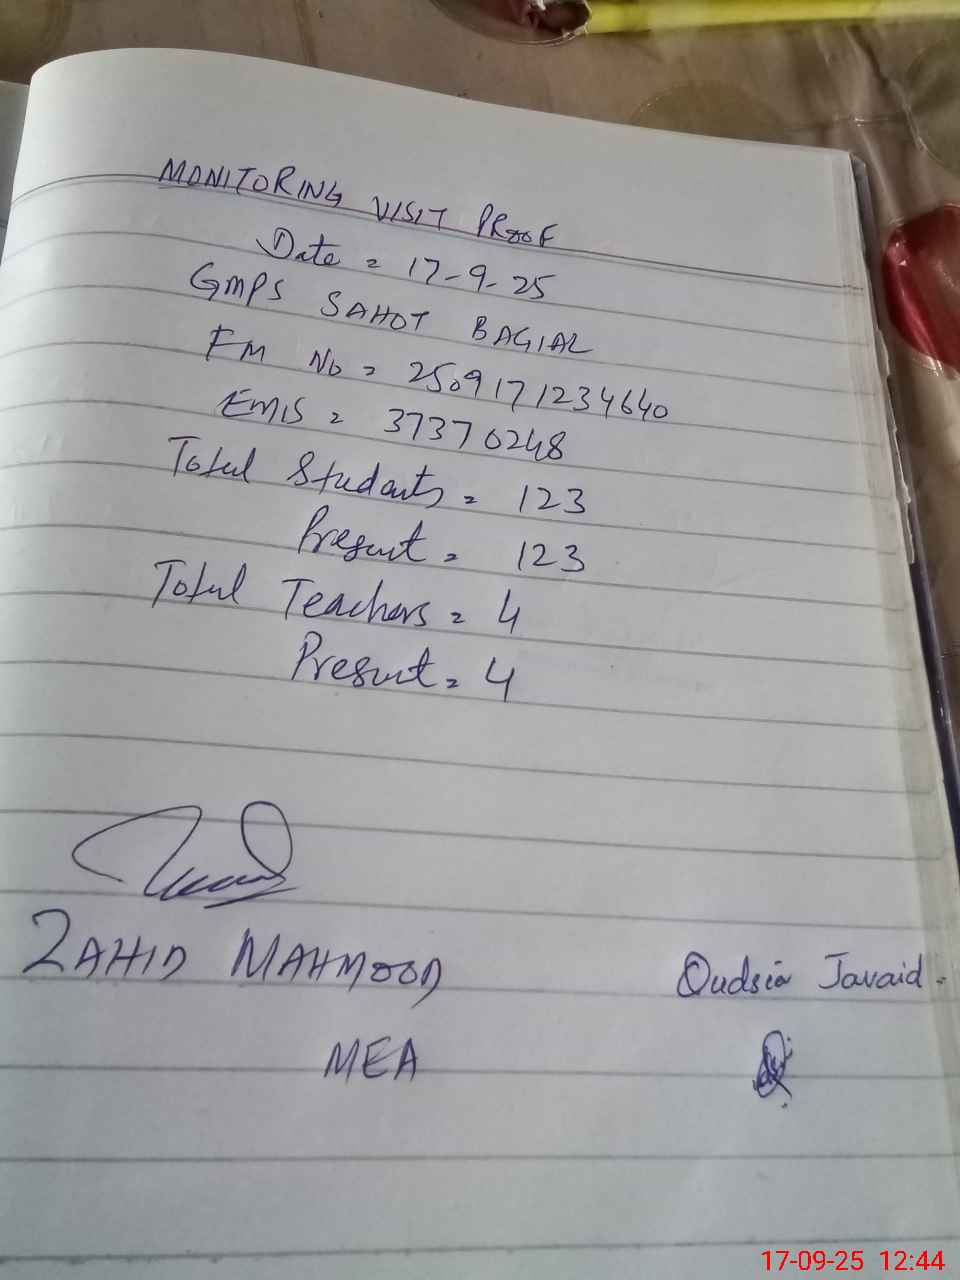 MONITORING VISIT PROOF
Date = 17-9-25
GMPS SAHOT BAGIAL
FM No = 2509171234640
EMIS = 37370248
Total Students = 123
Present = 123
Total Teachers = 4
Present = 4
ZAHID MAHMOOD
Qudsia Javaid.
MEA
17-09-25 12:44